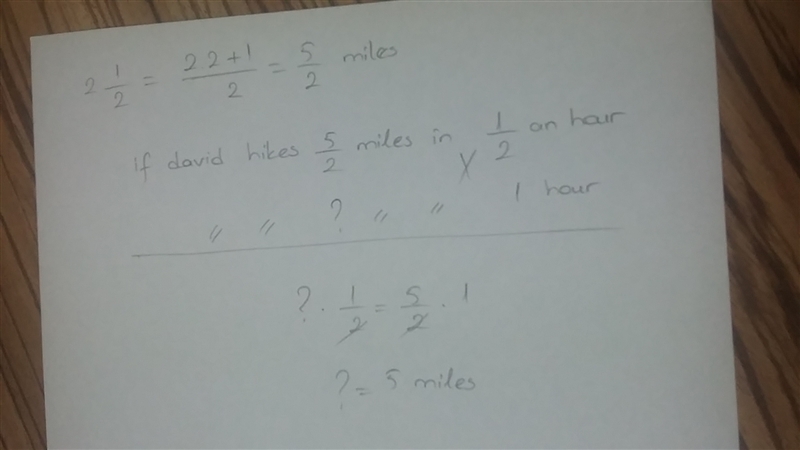 2 1/2 = 2 2+1/2 = 5/2 miles
If david hikes 5/2 miles in 1/2 an hour
〃 〃 ? 〃 〃 1 hour
? · 1/2 = 5/2 · 1
? = 5 miles